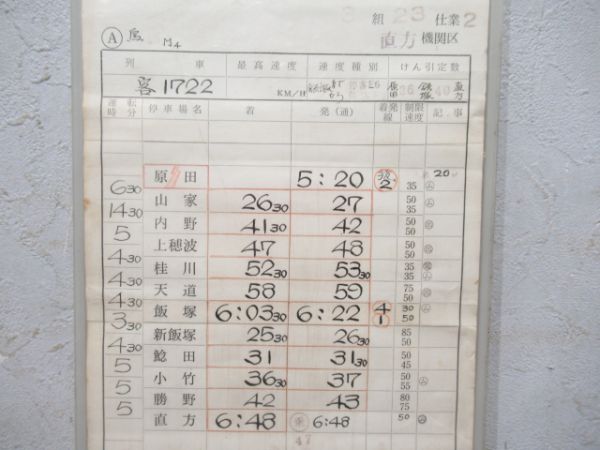 3 組 23 仕業 2
Ⓐ 鳥 M4 直方 機関区
列車 最高速度 速度種別 けん引定数
客1722 KM/H
運転時分 停車場名 着 発(通) 着発線 制限速度 記事
原田 5:20 2 20
630 35
山家 2630 27 50 35
1430
内野 4130 42 50
5
上穂波 47 48 50
430
桂川 5230 5330 35 35
430
天道 58 59 75 50
430
飯塚 6:0330 6:22 4 1 30 50
330
新飯塚 2530 2630 85 50
430
鯰田 31 3130 50 45
5
小竹 3630 37 50 55
5
勝野 42 43 80 75
5
直方 6:48 6:48 50
47